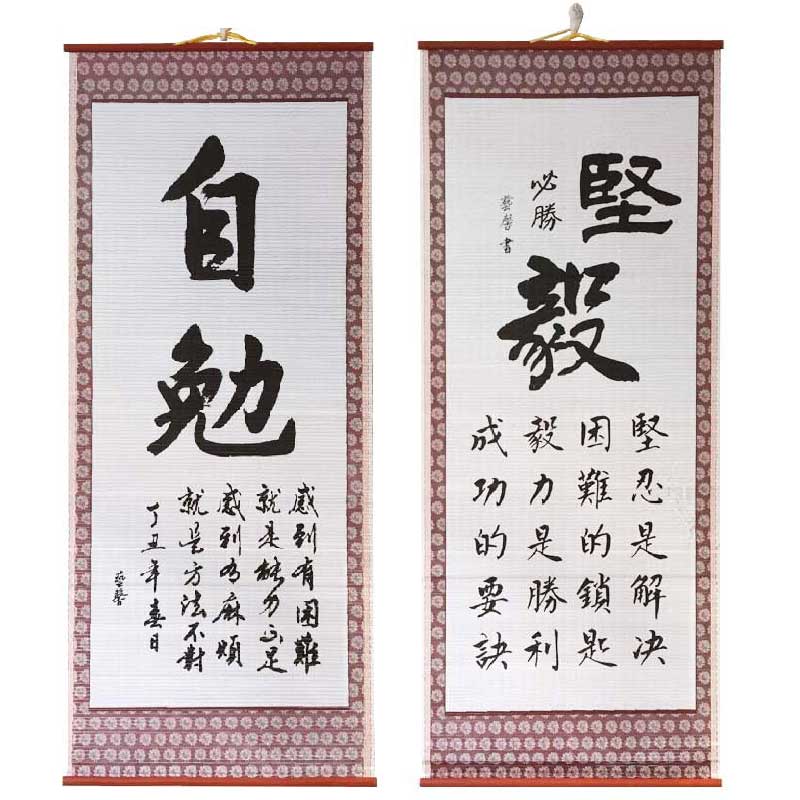 自勉
感到有困難
就是能力不足
感到有麻煩
就是方法不對
丁丑年春日
藝馨
堅毅
必勝
藝馨書
堅忍是解决
困難的鎖匙
毅力是勝利
成功的要訣